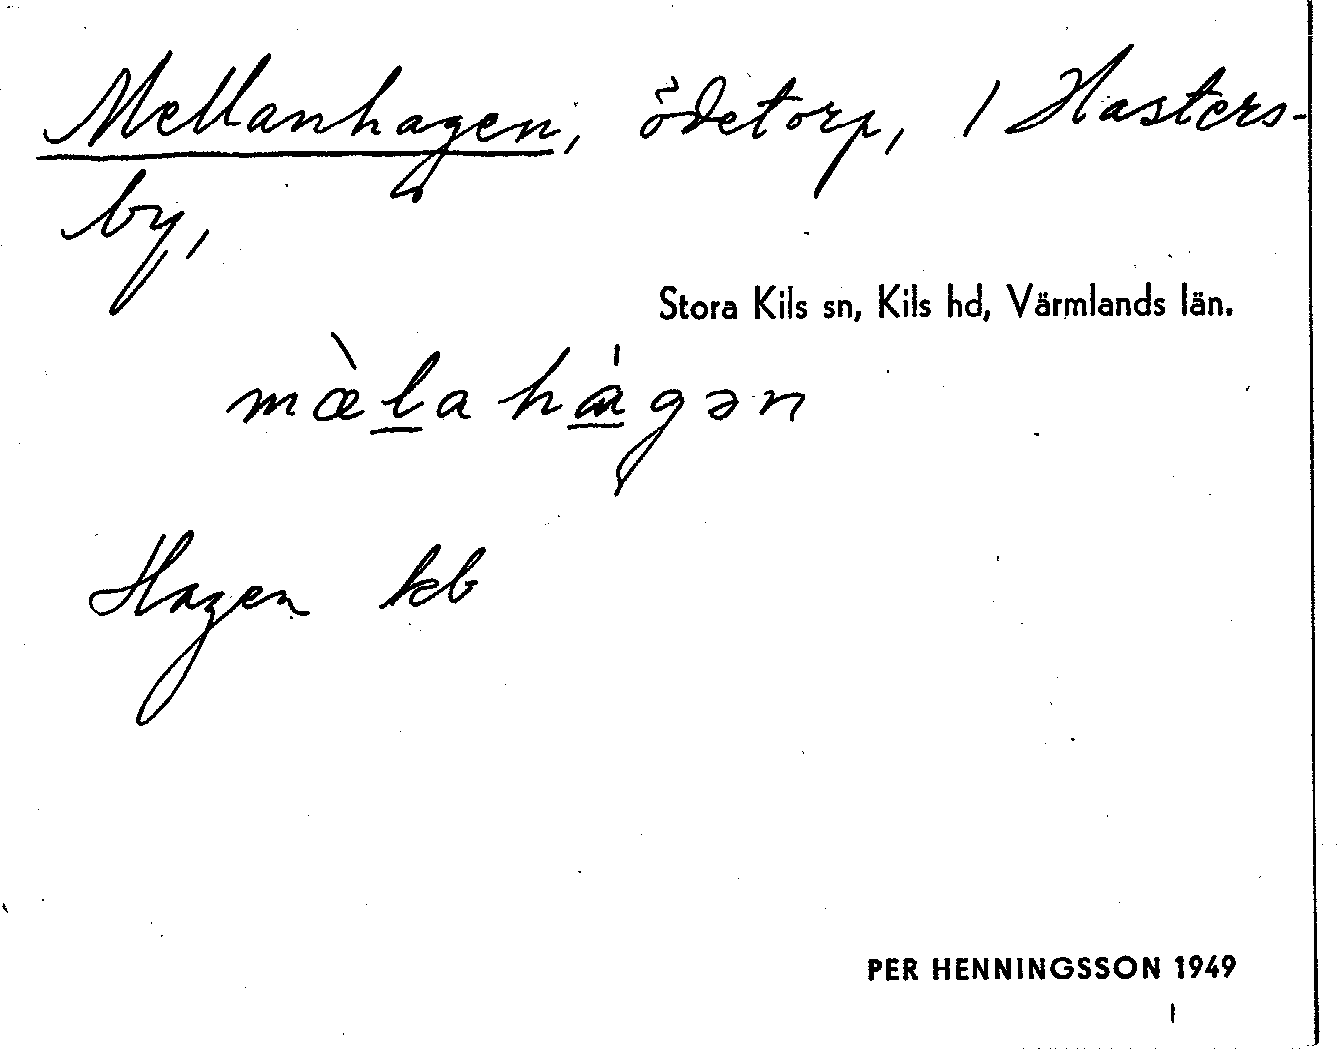 Mellanhagen, ödetorp, / Hasters-
by,
Stora Kils sn, Kils hd, Värmlands län.
mæ̀l̲a há̲gən
Hagen kb
PER HENNINGSSON 1949